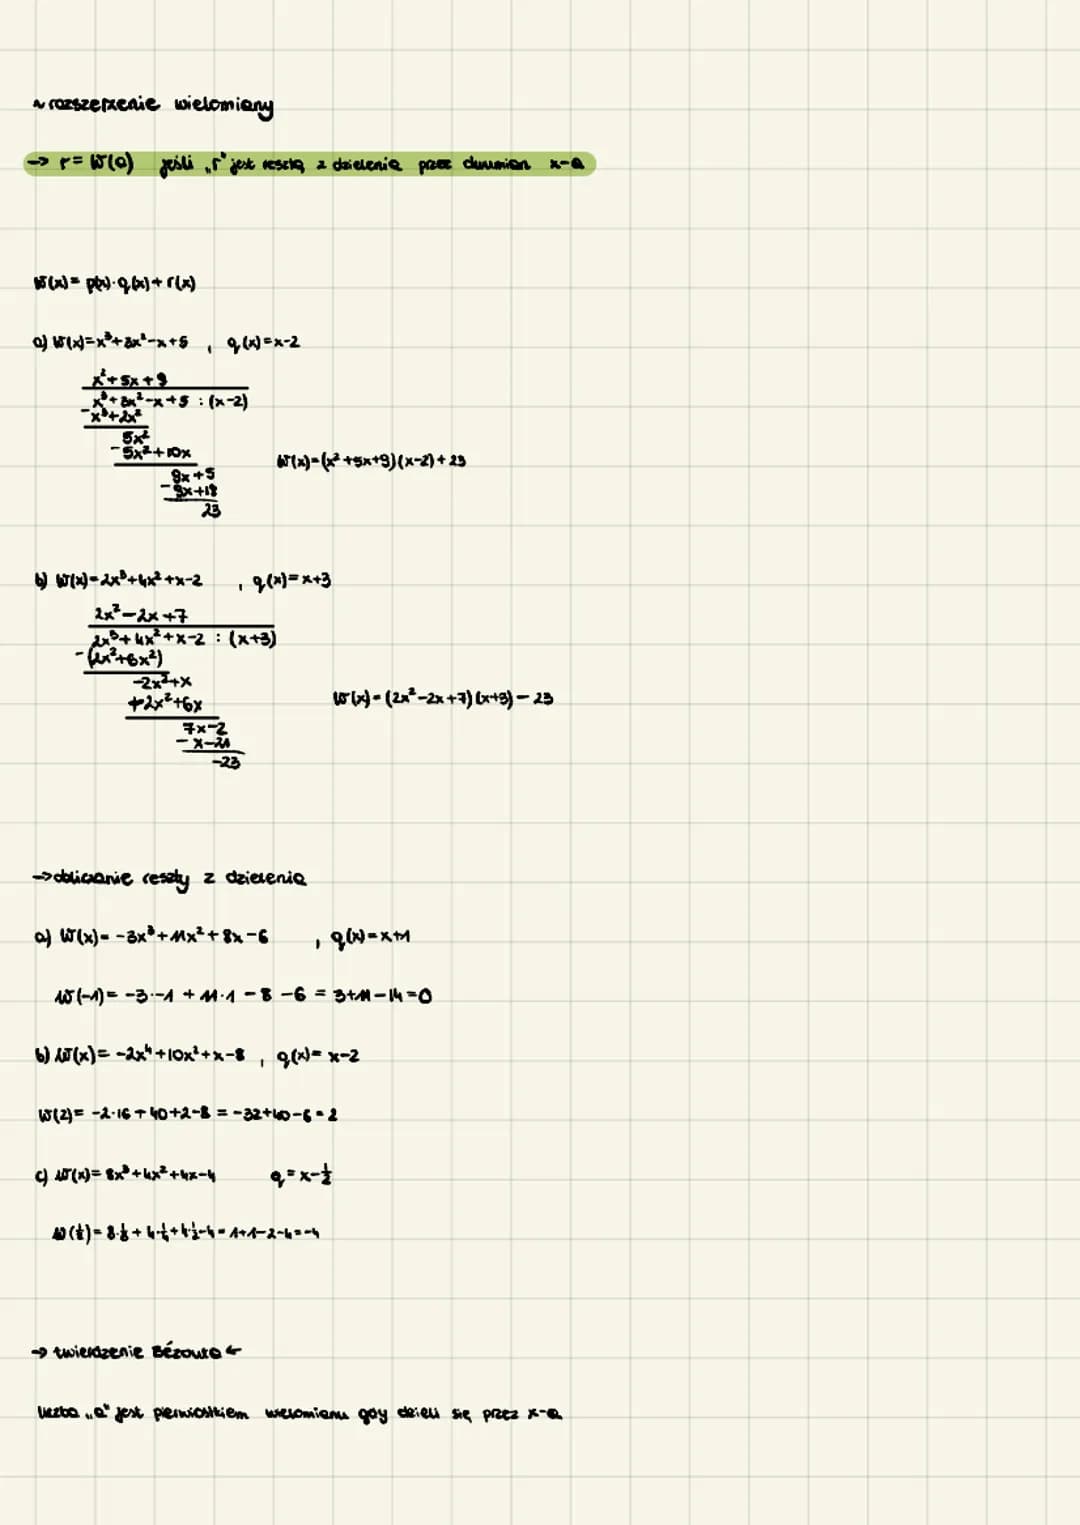 ~ rozszerzenie wielomiany
→ r = W(a) jeśli „r" jest resztą z dzielenia przez dwumian x-a
W(x) = p(x)·q(x) + r(x)
a) W(x)=x³+3x²-x+5 , q(x)=x-2
x²+5x+9
x³+3x²-x+5 : (x-2)
-x³+2x²
5x²
-5x²+10x
9x+5
-9x+18
23
W(x)=(x²+5x+9)(x-2)+23
b) W(x)=2x³+4x²+x-2 , q(x)=x+3
2x²-2x+7
2x³+4x²+x-2 : (x+3)
-(2x³+6x²)
-2x²+x
+2x²+6x
7x-2
-x-21
-23
W(x)=(2x²-2x+7)(x+3)-23
→ obliczanie reszty z dzielenia
a) W(x)= -3x³+11x²+8x-6 , q(x)=x+1
W(-1)= -3·-1 + 11·1 - 8 - 6 = 3+11-14=0
b) W(x)= -2x⁴+10x²+x-8 , q(x)= x-2
W(2)= -2·16+40+2-8 = -32+40-6=2
c) W(x)= 8x³+4x²+4x-4 q=x-½
W(½)= 8·⅛ + 4·¼+4·½-4=1+1-2-4=-4
→ twierdzenie Bézouta ←
liczba „a" jest pierwiostkiem wielomianu gdy dzieli się przez x-a